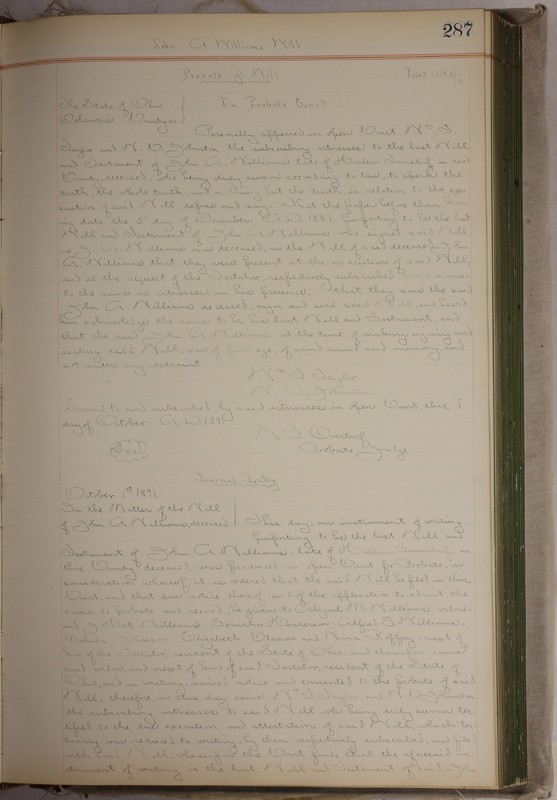 287
John A Williams Will
Probate of Will
The State of Ohio
Delaware County ss
In Probate Court
Personally appeared in open Court Wm T.
Taylor and H. the subscribing witnesses to the last Will
and Testament of John A. Williams late of Harlem Township in said
County, deceased, who being duly sworn according to law, to speak the
truth, the whole truth, and nothing but the truth, in relation to the exe-
cution of said Will depose and say: That the paper before them bear-
ing date the 5 day of December A.D. 1887 purporting to be the last
Will and Testament of John A. Williams who signed said Will
as J. A. Williams now deceased, is the Will of said deceased John
A. Williams that they were present at the execution of said Will,
and at the request of the Testator, respectively subscribed their names
to the same as witnesses in his presence, that they saw the said
John A. Williams deceased, sign and seal said Will, and heard
him acknowledge the same to be his last Will and Testament, and
that the said John A. Williams at the time of making, signing and
sealing said Will, was of full age, of sound mind and memory and
not under any restraint
Wm T Taylor
Sworn to and subscribed by said witnesses in open Court, this 1
day of October A.D. 1891
Probate Judge
Seal
Journal Entry
October 1st 1891
In the Matter of the Will
of John A Williams, deceased
This day, an instrument of writing,
purporting to be the last Will and
Testament of John A. Williams, late of Harlem Township, in
this County deceased, was produced in open Court for Probate, on
consideration whereof, it is ordered that the said Will be filed in this
Court, and that due notice thereof, and of the application to admit the
same to probate and record, be given to M. Williams, widow,
and J Williams, Alfred S Williams,
Elizabeth and next of
kin of the Testator, resident of the State of Ohio and thereupon came
said widow and next of kin of said Testator, resident of the State of
Ohio, and in writing, waived notice and consented to the probate of said
Will; therefore, on this day came Wm T Taylor and H.
the subscribing witnesses to said Will who being duly sworn tes-
tified to the due execution and attestation of said Will, which tes-
timony was reduced to writing, by them respectively subscribed, and filed
with said Will, whereupon the Court finds that the aforesaid in-
strument of writing is the last Will and Testament of said John